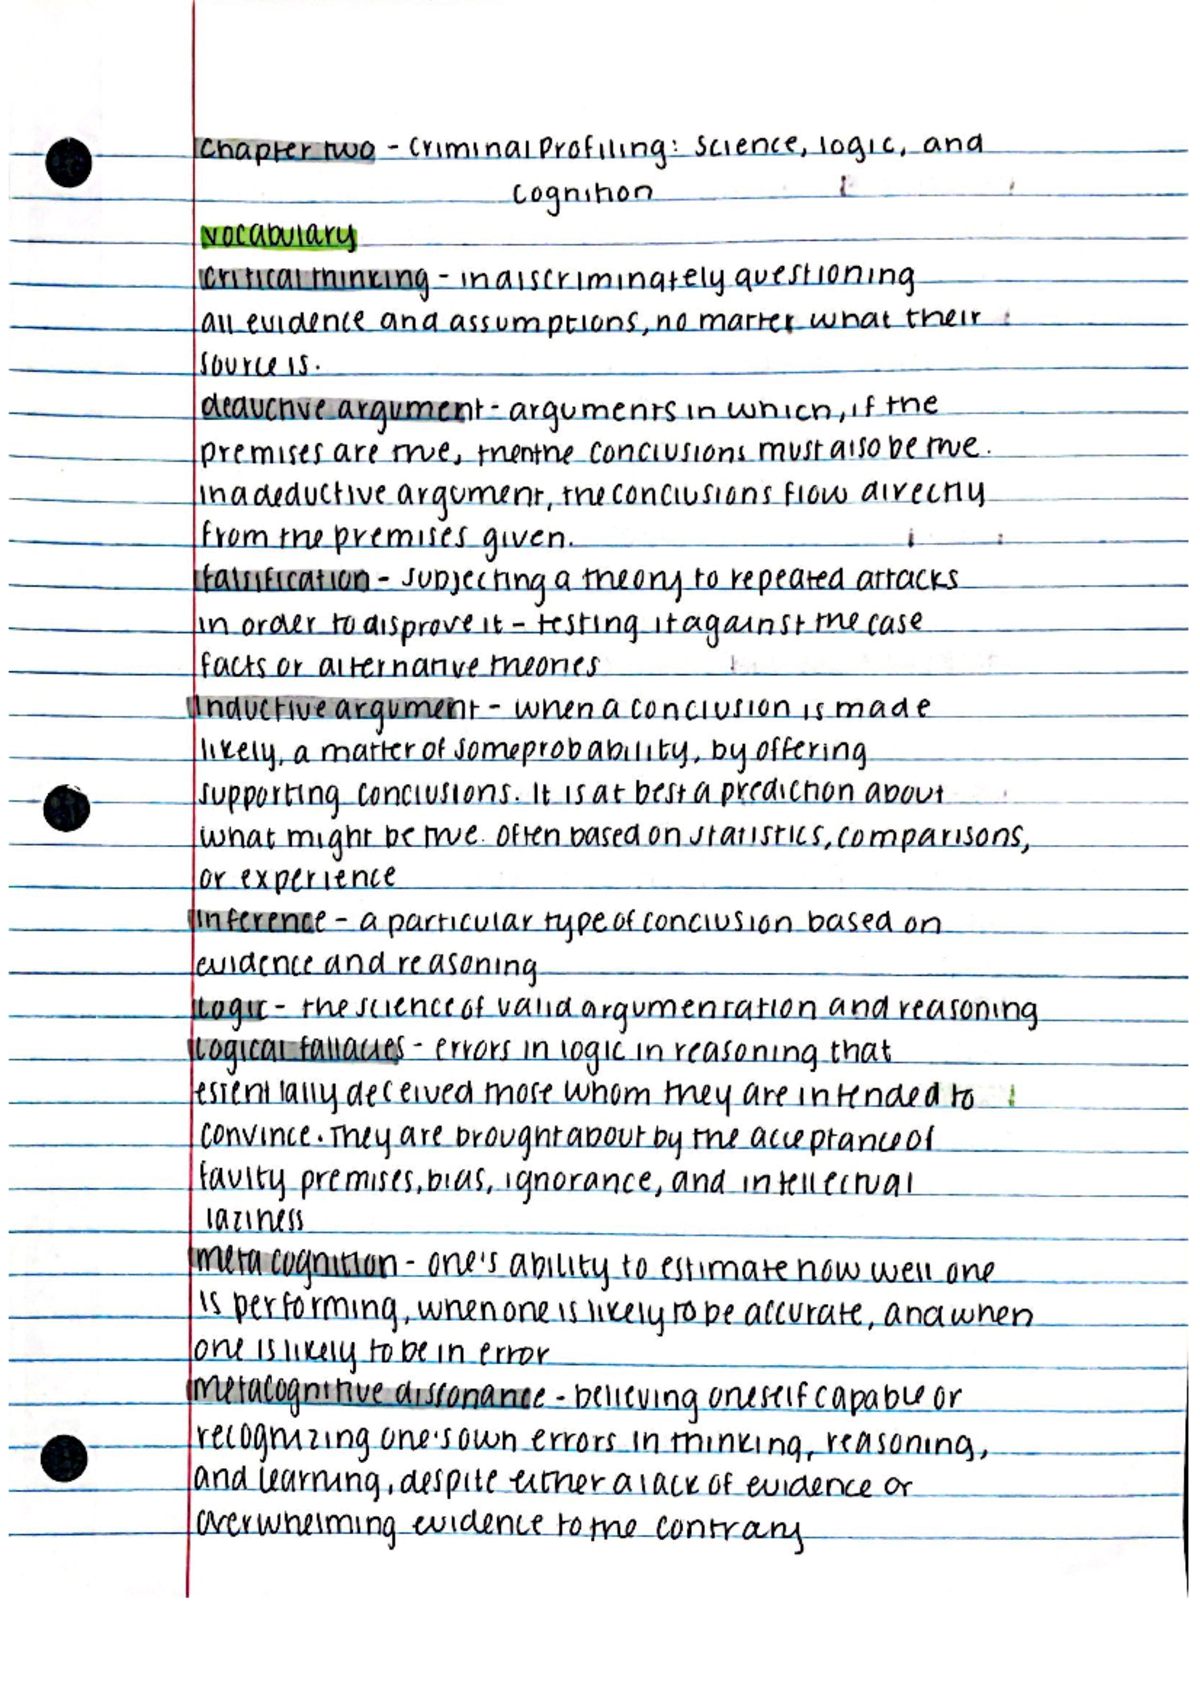 Chapter two - Criminal Profiling: Science, logic, and
Cognition
vocabulary
critical thinking - indiscriminately questioning
all evidence and assumptions, no matter what their
source is.
deductive argument - arguments in which, if the
premises are true, then the conclusions must also be true.
in a deductive argument, the conclusions flow directly
from the premises given.
falsification - subjecting a theory to repeated attacks
in order to disprove it - testing it against the case
facts or alternative theories
inductive argument - when a conclusion is made
likely, a matter of some probability, by offering
supporting conclusions. It is at best a prediction about
what might be true. Often based on statistics, comparisons,
or experience
inference - a particular type of conclusion based on
evidence and reasoning
Logic - the science of valid argumentation and reasoning
Logical fallacies - errors in logic in reasoning that
essentially deceived those whom they are intended to
convince. They are brought about by the acceptance of
faulty premises, bias, ignorance, and intellectual
laziness
meta cognition - one's ability to estimate how well one
is performing, when one is likely to be accurate, and when
one is likely to be in error
metacognitive dissonance - believing oneself capable or
recognizing one's own errors in thinking, reasoning,
and learning, despite either a lack of evidence or
overwhelming evidence to the contrary